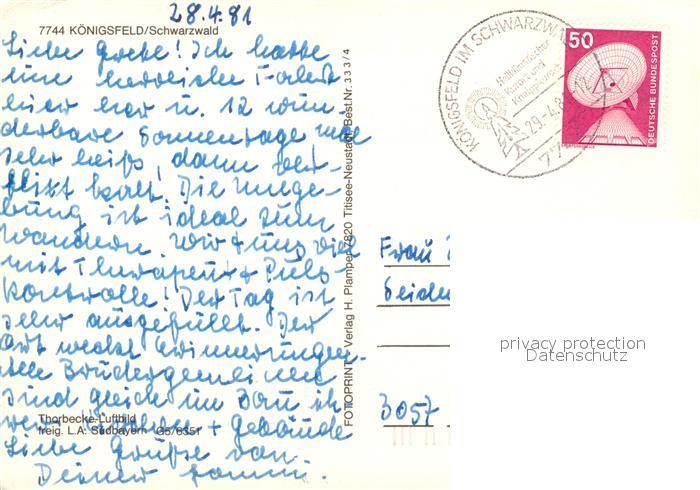 28.4.81
7744 KÖNIGSFELD/Schwarzwald
Liebe Grete! Ich hatte
eine herrliche Fahrt
hier her u. 12 wun-
derbare Sonnentage und
sehr heiß, dann
kalt. Die Umge-
bung ist ideal zum
wandern. viel
mit Therapeut + Puls-
kontrolle! Der Tag ist
sehr ausgefüllt. Der
Ort weckt Erinnerungen.
alle Brüdergemeinen
sind gleich im Bau
+ Gebäude
Liebe Grüße von
Deiner
Thorbecke-Luftbild
freig. L.A. Südbayern G5/6351
FOTOPRINT - Verlag H. Plamper 7820 Titisee-Neustadt Best.Nr. 333/4
KÖNIGSFELD IM SCHWARZWA
Heilklimatischer
Kurort und
Kneippkurort
29.-4.8
77
50
DEUTSCHE BUNDESPOST
Frau
3057
privacy protection
Datenschutz